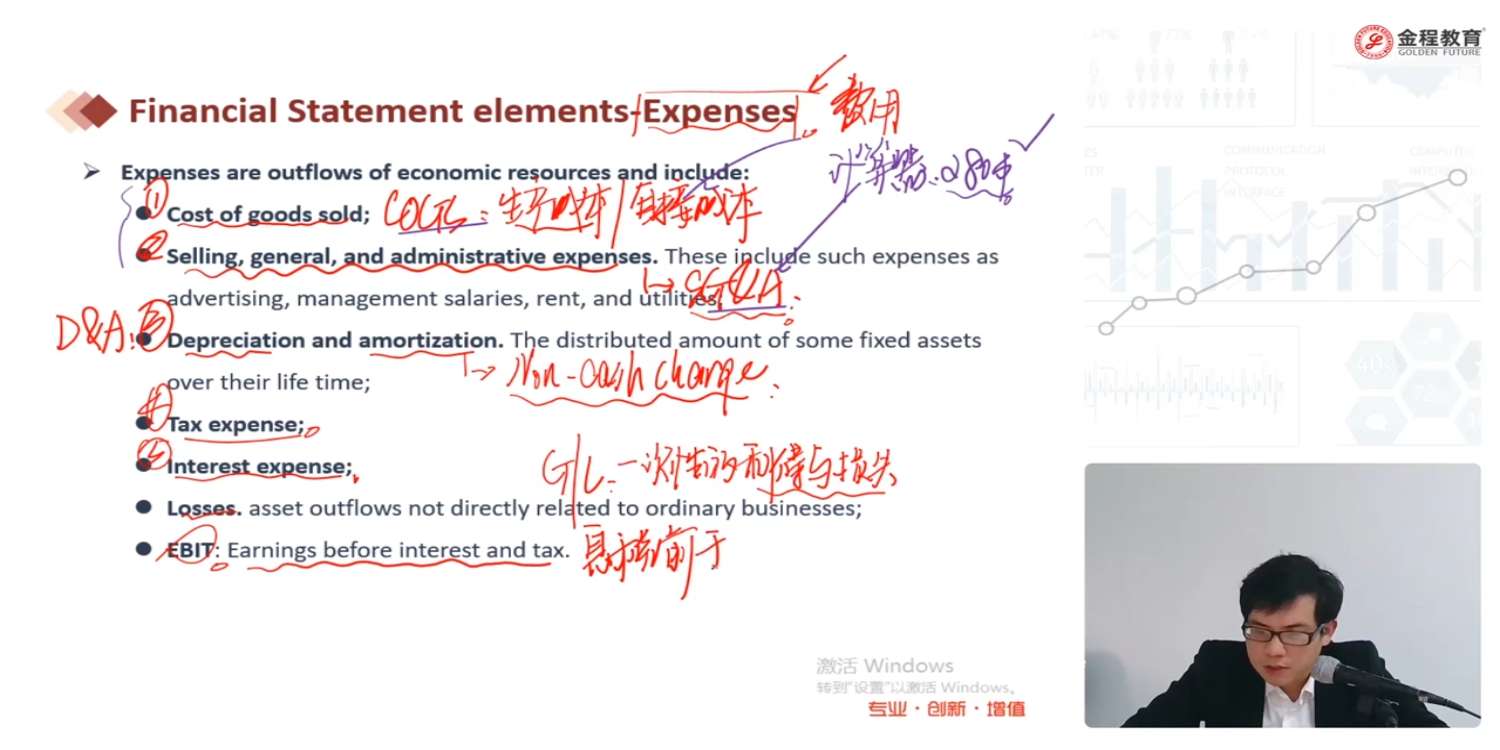 金程教育
GOLDEN FUTURE
Financial Statement elements-Expenses
费用
计算器
Expenses are outflows of economic resources and include:
① Cost of goods sold; COGS: 生产成本/直接成本
② Selling, general, and administrative expenses. These include such expenses as
advertising, management salaries, rent, and utilities. SG&A
D&A: ③ Depreciation and amortization. The distributed amount of some fixed assets
over their life time; Non-cash charge
④ Tax expense;
⑤ Interest expense; G/L: 一次性的利得与损失
Losses. asset outflows not directly related to ordinary businesses;
EBIT: Earnings before interest and tax. 息税前
激活 Windows
转到“设置”以激活 Windows。
专业·创新·增值